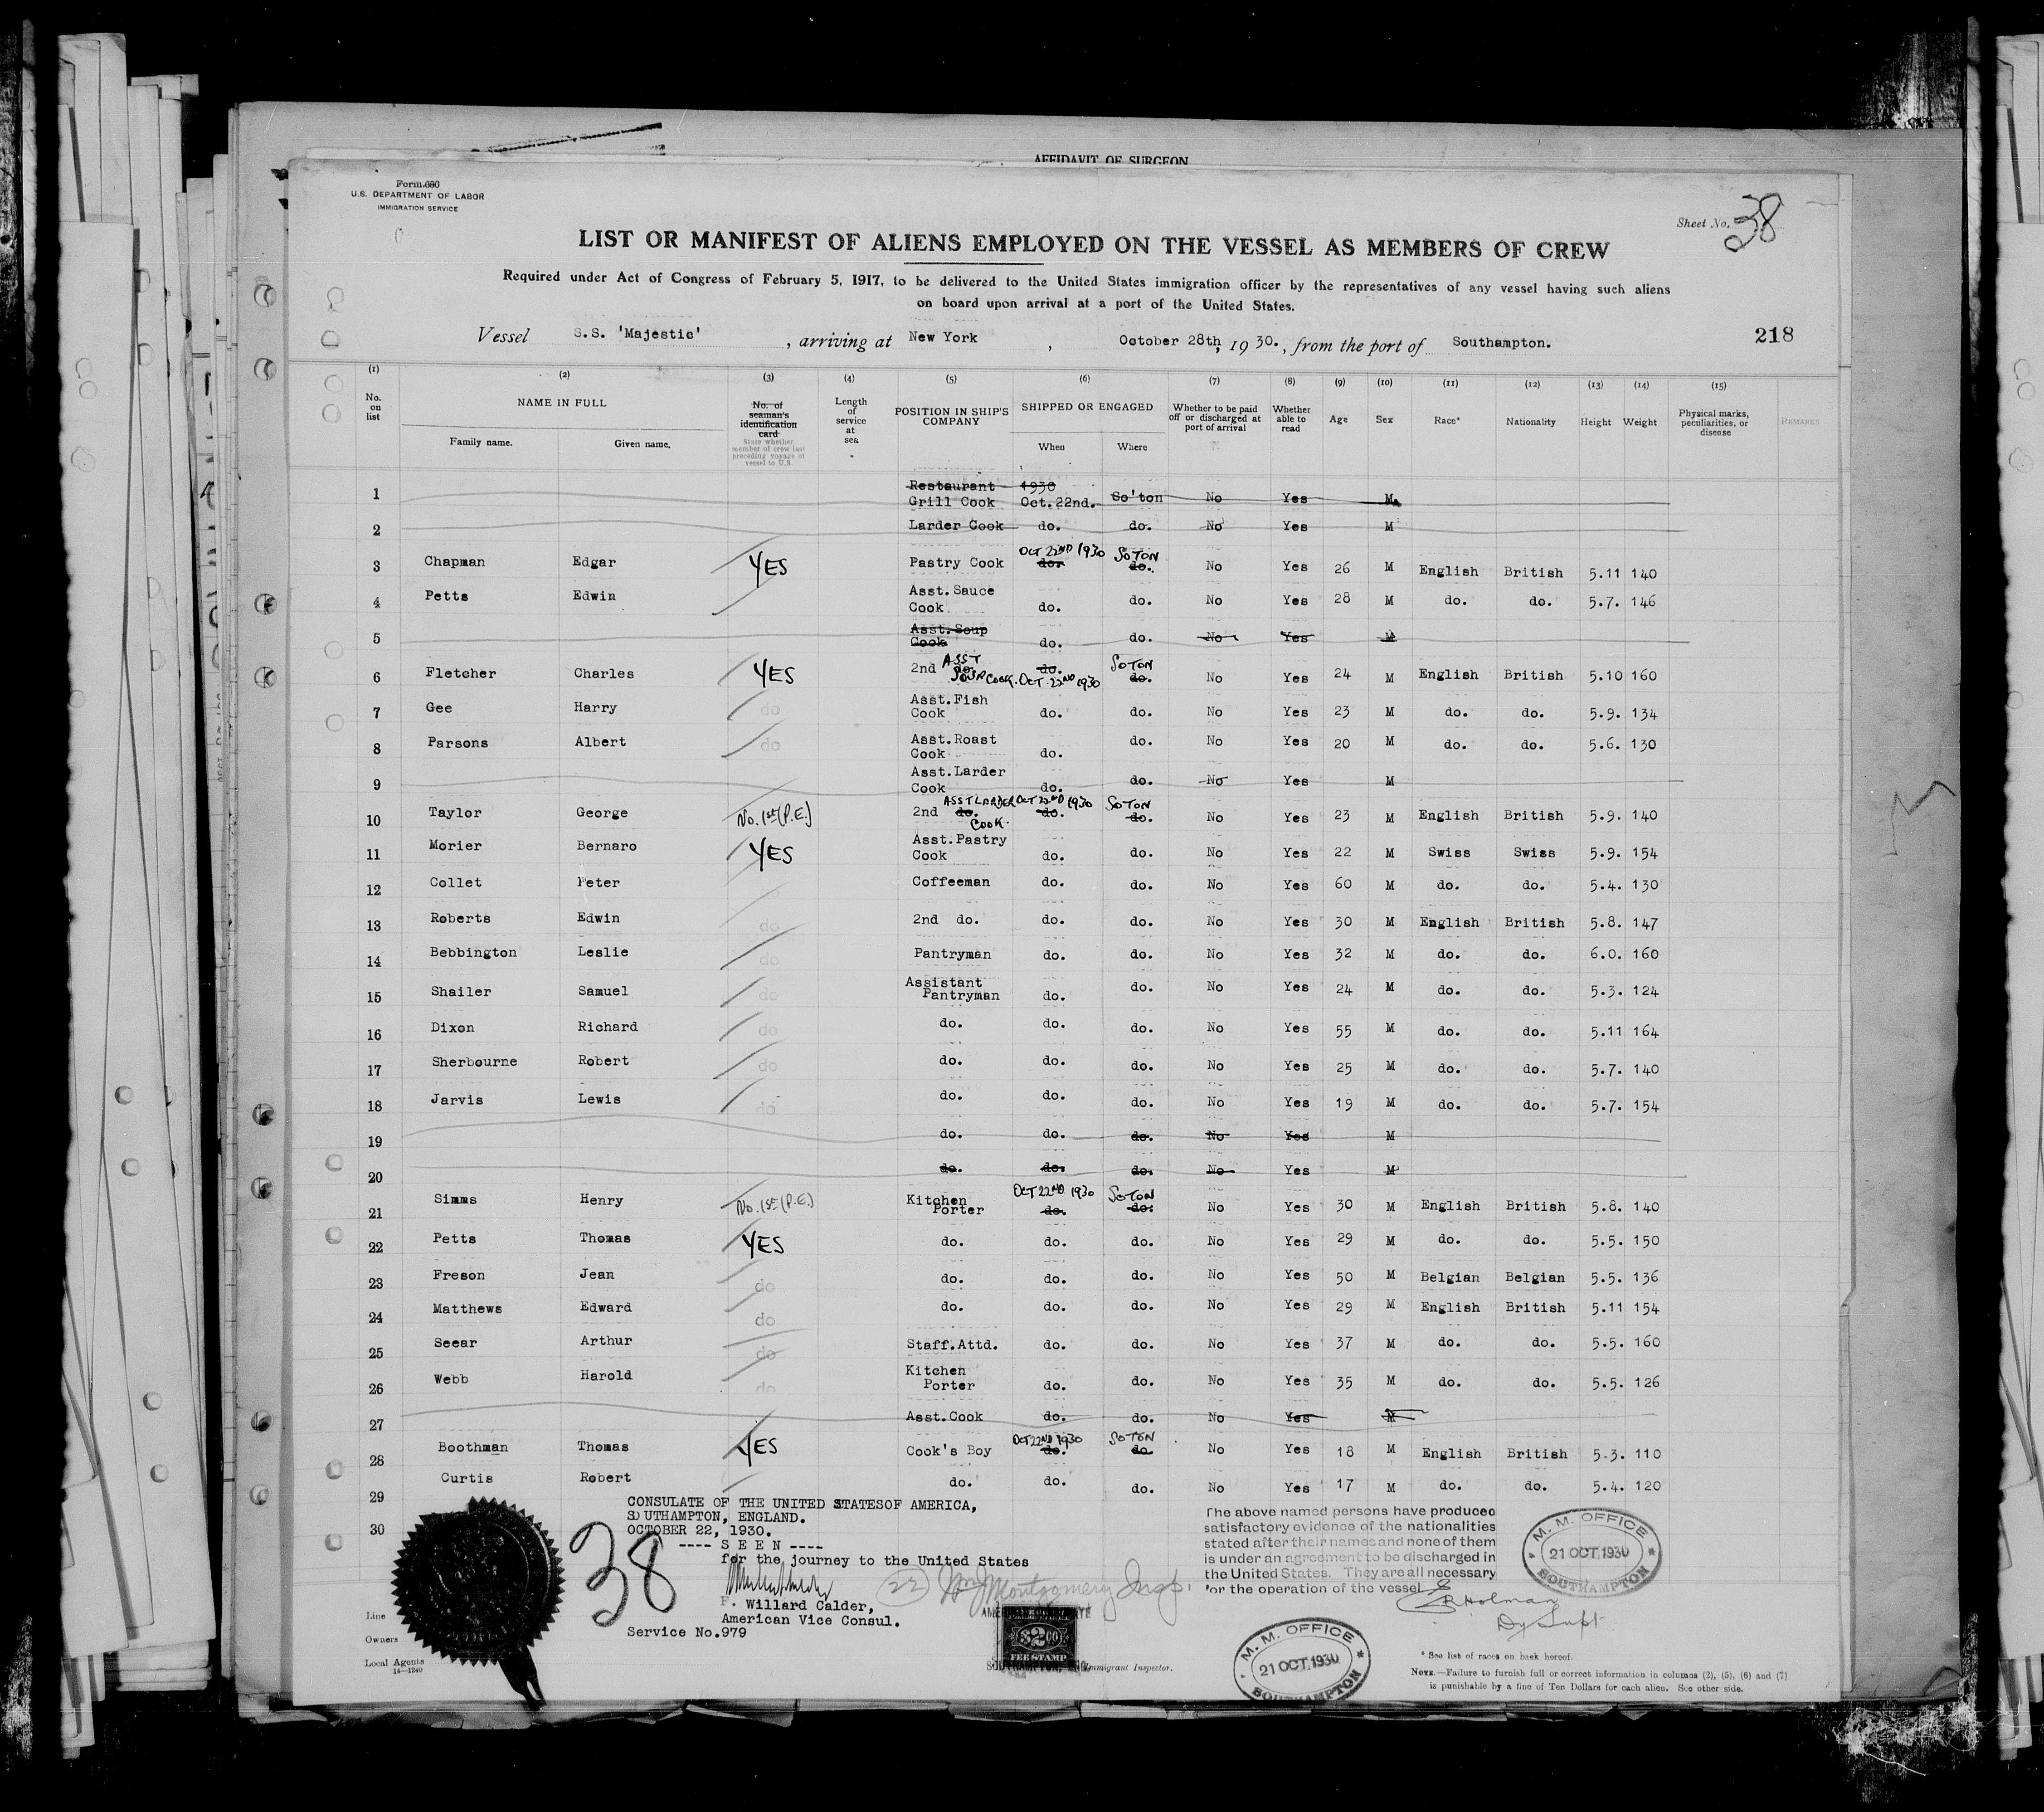 AFFIDAVIT OF SURGEON
Form 680
U.S. DEPARTMENT OF LABOR
IMMIGRATION SERVICE
Sheet No. 38
LIST OR MANIFEST OF ALIENS EMPLOYED ON THE VESSEL AS MEMBERS OF CREW
Required under Act of Congress of February 5, 1917, to be delivered to the United States immigration officer by the representatives of any vessel having such aliens
on board upon arrival at a port of the United States.
Vessel S.S. 'Majestic' , arriving at New York , October 28th, 19 30. , from the port of Southampton. 218
(1) (2) (3) (4) (5) (6) (7) (8) (9) (10) (11) (12) (13) (14) (15)
No. on list NAME IN FULL Family name. Given name. No. of seaman's identification card State whether member of crew last preceding voyage of vessel to U.S. Length of service at sea POSITION IN SHIP'S COMPANY SHIPPED OR ENGAGED When Where Whether to be paid off or discharged at port of arrival Whether able to read Age Sex Race* Nationality Height Weight Physical marks, peculiarities, or disease REMARKS
1 Restaurant Grill Cook 1930 Oct.22nd. So'ton No Yes M
2 Larder Cook do. do. No Yes M
3 Chapman Edgar YES Pastry Cook OCT 22ND 1930 do. SOTON do. No Yes 26 M English British 5.11 140
4 Petts Edwin Asst.Sauce Cook do. do. No Yes 28 M do. do. 5.7. 146
5 Asst.Soup Cook do. do. No Yes M
6 Fletcher Charles YES 2nd do. ASST SOUP COOK. do. OCT.22ND 1930 SOTON do. No Yes 24 M English British 5.10 160
7 Gee Harry do Asst.Fish Cook do. do. No Yes 23 M do. do. 5.9. 134
8 Parsons Albert do Asst.Roast Cook do. do. No Yes 20 M do. do. 5.6. 130
9 Asst.Larder Cook do. do. No Yes M
10 Taylor George No. 1st (P.E.) 2nd do. ASST LARDER COOK. OCT 22ND 1930 do. SOTON do. No Yes 23 M English British 5.9. 140
11 Morier Bernaro YES Asst.Pastry Cook do. do. No Yes 22 M Swiss Swiss 5.9. 154
12 Collet Peter Coffeeman do. do. No Yes 60 M do. do. 5.4. 130
13 Roberts Edwin do 2nd do. do. do. No Yes 30 M English British 5.8. 147
14 Bebbington Leslie do Pantryman do. do. No Yes 32 M do. do. 6.0. 160
15 Shailer Samuel do Assistant Pantryman do. do. No Yes 24 M do. do. 5.3. 124
16 Dixon Richard do do. do. do. No Yes 55 M do. do. 5.11 164
17 Sherbourne Robert do do. do. do. No Yes 25 M do. do. 5.7. 140
18 Jarvis Lewis do do. do. do. No Yes 19 M do. do. 5.7. 154
19 do. do. do. No Yes M
20 do. do. do. No Yes M
21 Simms Henry No. 1st (P.E.) Kitchen Porter OCT 22ND 1930 do. SOTON do. No Yes 30 M English British 5.8. 140
22 Petts Thomas YES do. do. do. No Yes 29 M do. do. 5.5. 150
23 Freson Jean do do. do. do. No Yes 50 M Belgian Belgian 5.5. 136
24 Matthews Edward do do. do. do. No Yes 29 M English British 5.11 154
25 Seear Arthur do Staff.Attd. do. do. No Yes 37 M do. do. 5.5. 160
26 Webb Harold do Kitchen Porter do. do. No Yes 35 M do. do. 5.5. 126
27 Asst.Cook do. do. No Yes M
28 Boothman Thomas YES Cook's Boy OCT 22ND 1930 do. SOTON do. No Yes 18 M English British 5.3. 110
29 Curtis Robert do. do. do. No Yes 17 M do. do. 5.4. 120
30
CONSULATE OF THE UNITED STATESOF AMERICA,
SOUTHAMPTON, ENGLAND.
OCTOBER 22, 1930.
---- S E E N ----
for the journey to the United States
F. Willard Calder,
American Vice Consul.
Service No.979
38
22 Wm J Montgomery Insp.
$2.00
FEE STAMP
SOUTHAMPTON, ENG.
Immigrant Inspector.
The above named persons have produced
satisfactory evidence of the nationalities
stated after their names and none of them
is under an agreement to be discharged in
the United States. They are all necessary
for the operation of the vessel
Holman
Dy Supt
M. M. OFFICE
21 OCT 1930
SOUTHAMPTON
M. M. OFFICE
21 OCT 1930
SOUTHAMPTON
Line
Owners
Local Agents
14—1240
* See list of races on back hereof.
NOTE.—Failure to furnish full or correct information in columns (2), (5), (6) and (7)
is punishable by a fine of Ten Dollars for each alien. See other side.